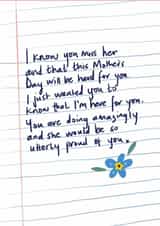 I know you miss her
and that this Mother's
Day will be hard for you
I just wanted you to
know that I'm here for you.
You are doing amazingly
and she would be so
utterly proud of you.